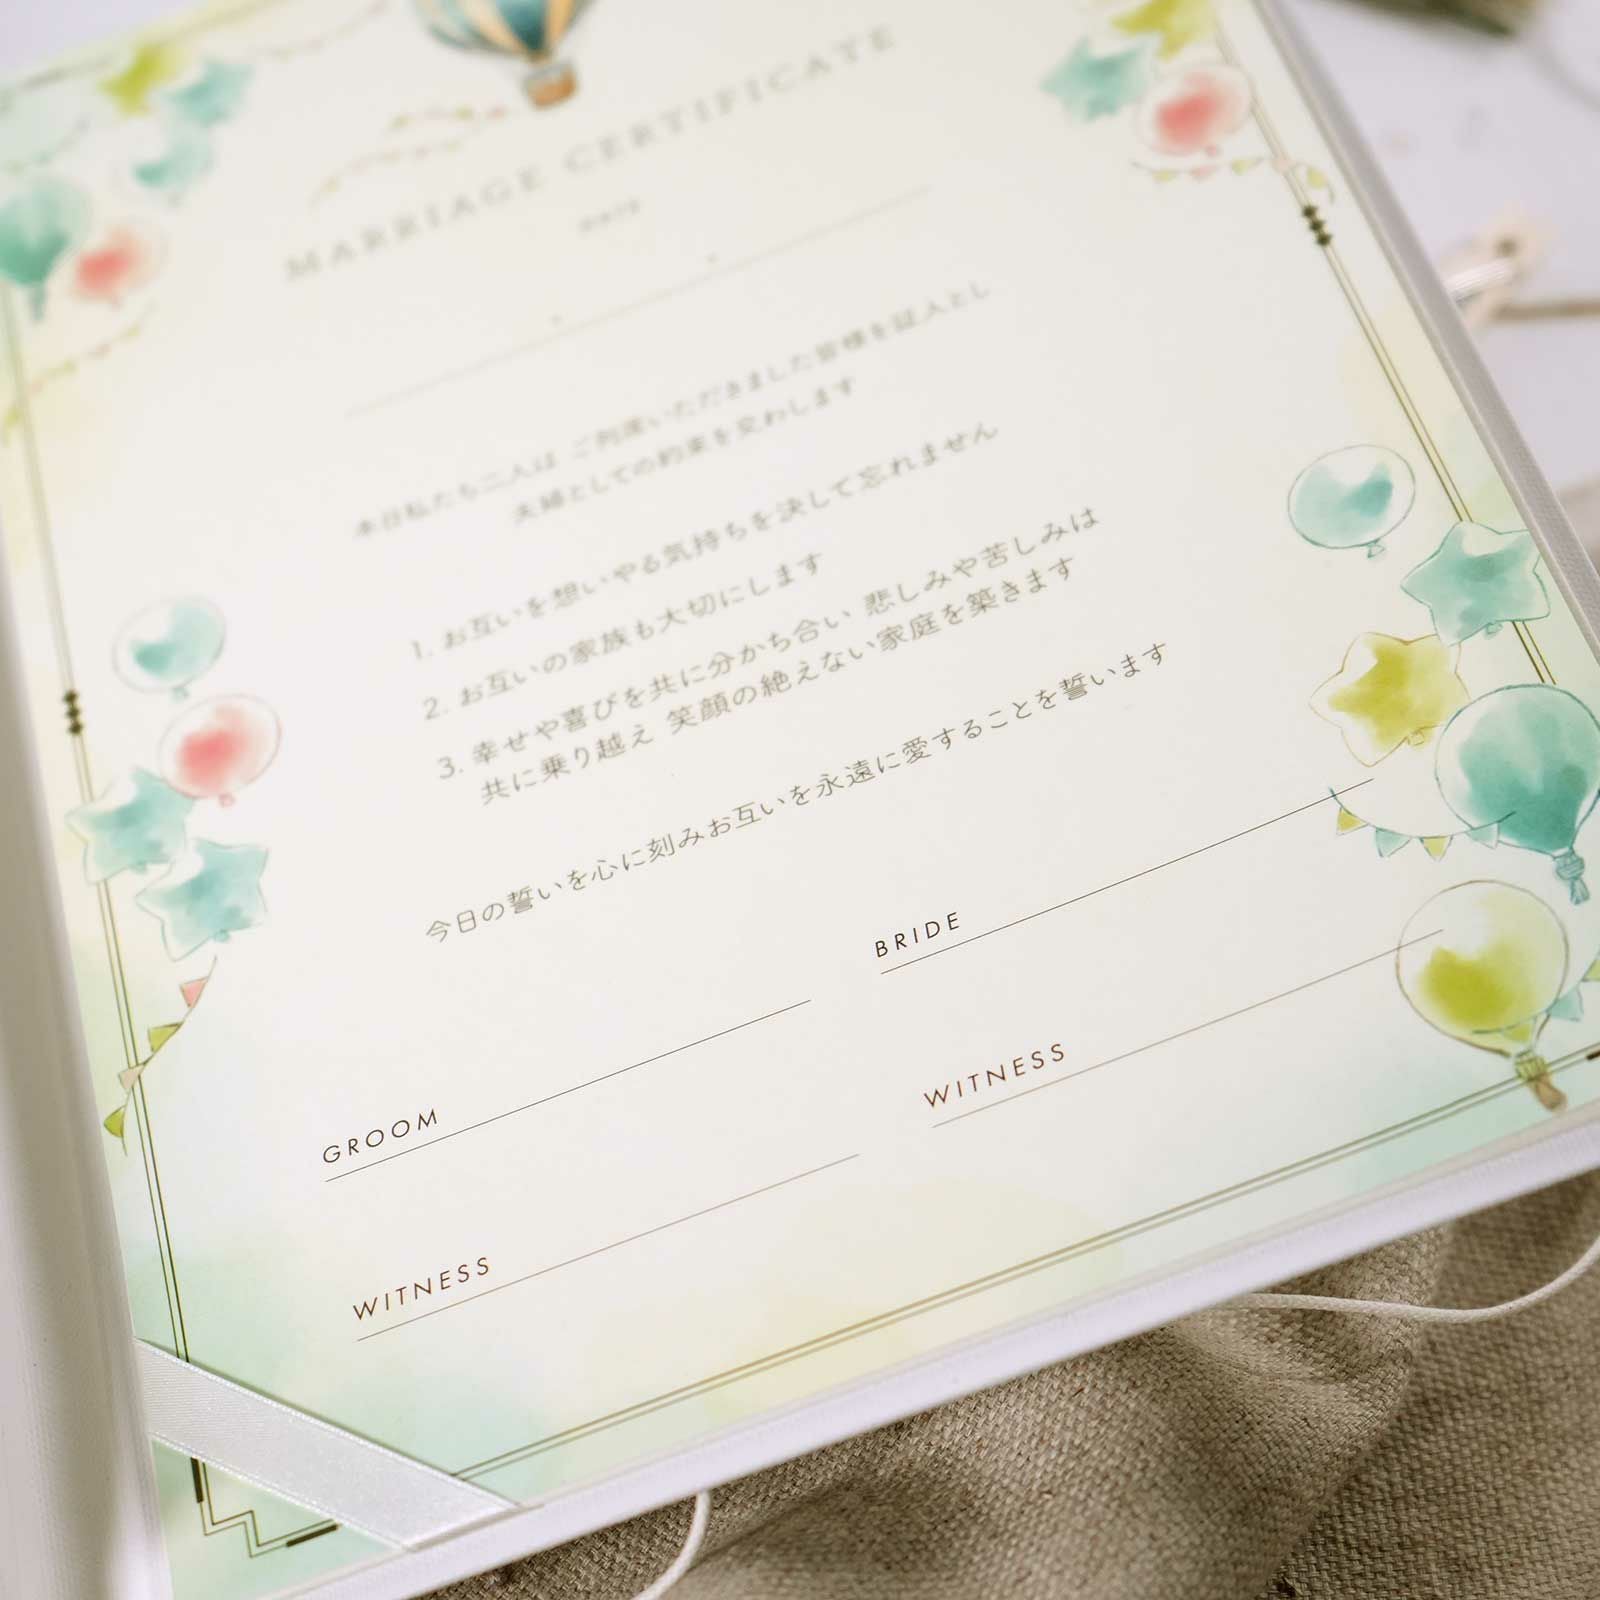 MARRIAGE CERTIFICATE
DATE
本日私たち二人は ご列席いただきました皆様を証人とし
夫婦としての約束を交わします
1. お互いを想いやる気持ちを決して忘れません
2. お互いの家族も大切にします
3. 幸せや喜びを共に分かち合い 悲しみや苦しみは
共に乗り越え 笑顔の絶えない家庭を築きます
今日の誓いを心に刻みお互いを永遠に愛することを誓います
GROOM
BRIDE
WITNESS
WITNESS